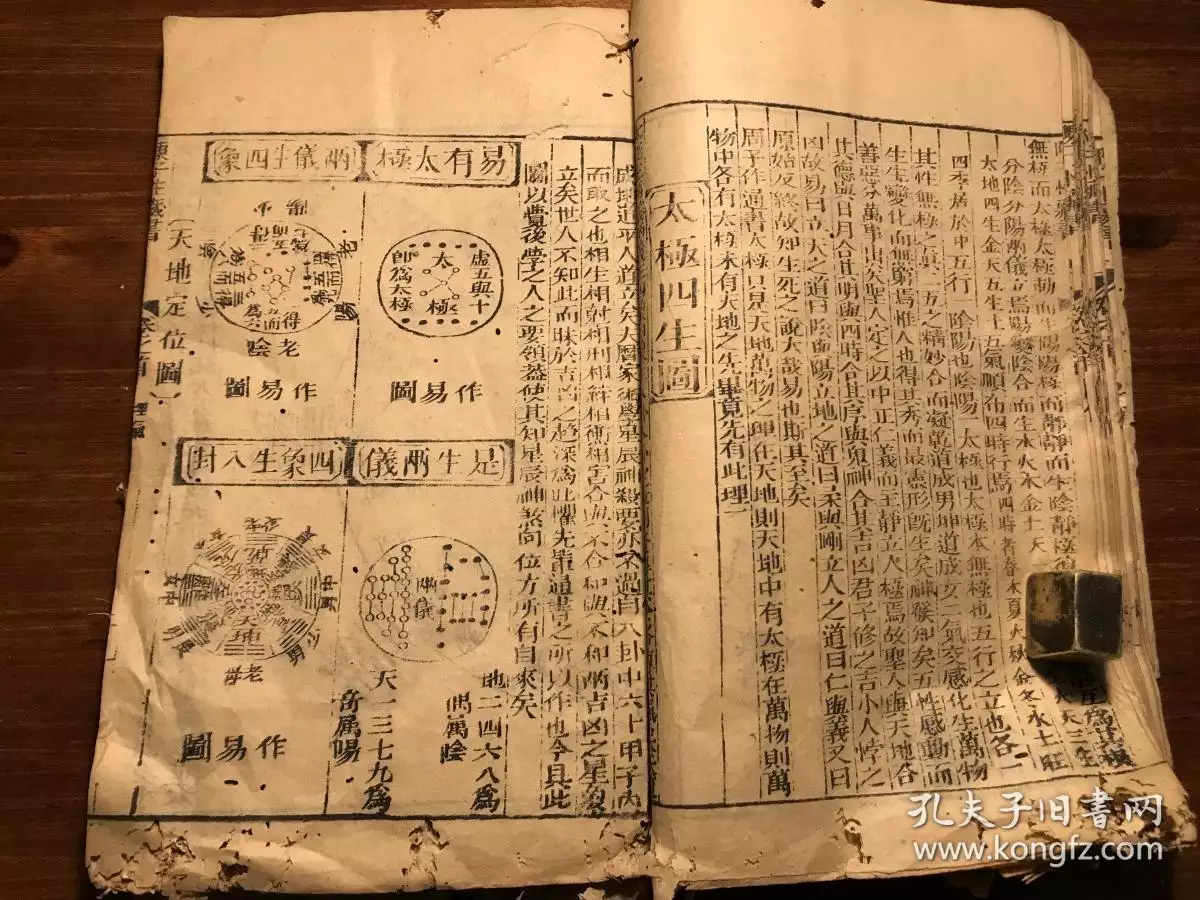 無極而太極太極動而生陽陽極而靜靜而生陰靜極
分陰分陽兩儀立焉陽變陰合而生水火木金土天
太地四生金天五生土五氣順布四時行焉四時者春木夏火秋金冬水土旺
四季居於中五行一陰陽也陰陽一太極也太極本無極也五行之立也各一
其性無極之真二五之精妙合而凝乾道成男坤道成女二氣交感化生萬物
生生變化而無窮焉惟人也得其秀而最靈形既生矣神發知矣五性感動而
善惡分萬事出矣聖人定之以中正仁義而主靜立人極焉故聖人與天地合
其德與日月合其明與四時合其序與鬼神合其吉凶君子修之吉小人悖之
凶故易曰立天之道曰陰與陽立地之道曰柔與剛立人之道曰仁與義又曰
原始反終故知生死之說大哉易也斯其至矣
周子作通書太極只是天地萬物之理在天地則天地中有太極在萬物則萬
物中各有太極未有天地之先畢竟先有此理
太極四生圖
成坤道平人道立矣大曆家術學星辰神殺要亦不過自八卦中六十甲子內
而取之也相生相尅相刑相絆相衝相害合與不合和與不和兩吉凶之星殺
立矣世人不知此而昧於吉凶之趨深為此懼先輩通書之所以作也今具此
圖以費後學之人之要領蓋使其知星辰神煞向位方所有自來矣
易有太極
虛五與十
太極
即為太極
作易圖
兩儀生四象
老陽
老陰
得四而為六
作易圖
是生兩儀
兩儀
地二四六八為
偶屬陰
天一三七九為
奇屬陽
四象生八卦
老母
少男
中男
作易圖
〔天地定位圖〕
孔夫子旧书网
www.kongfz.com